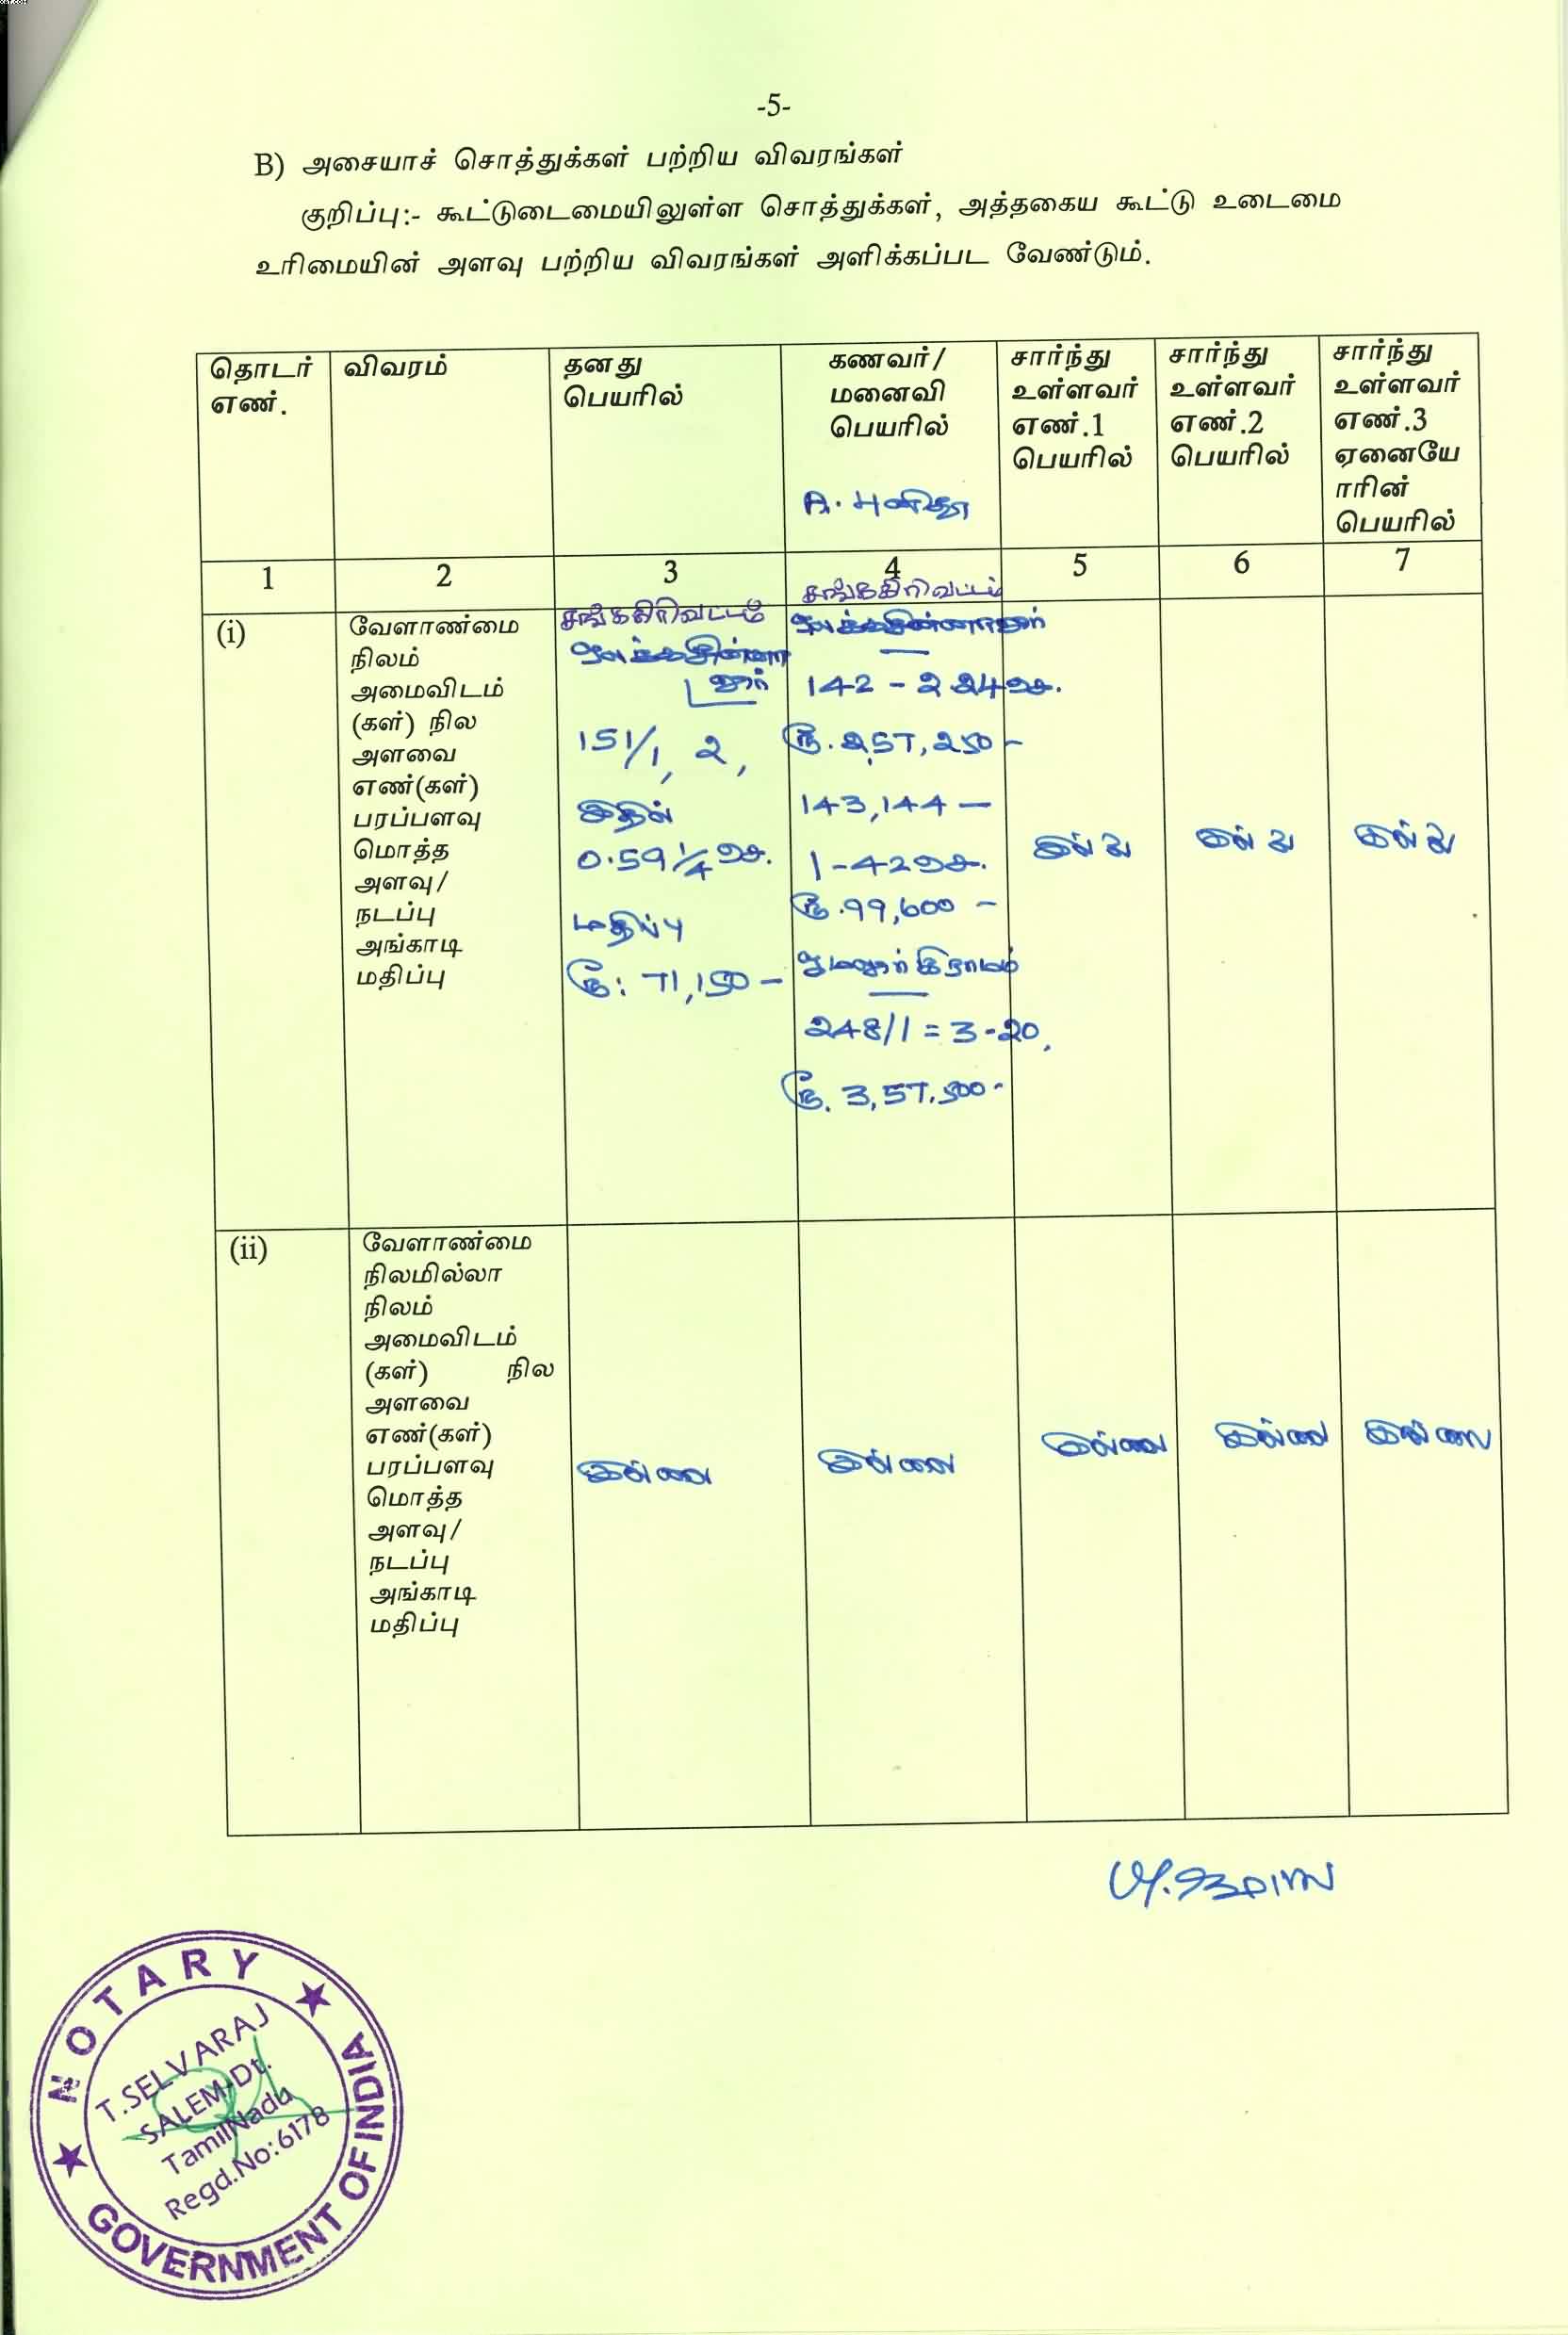 -5-
B) அசையாச் சொத்துக்கள் பற்றிய விவரங்கள்
குறிப்பு:- கூட்டுடைமையிலுள்ள சொத்துக்கள், அத்தகைய கூட்டு உடைமை
உரிமையின் அளவு பற்றிய விவரங்கள் அளிக்கப்பட வேண்டும்.
தொடர்
எண்.
விவரம்
தனது
பெயரில்
கணவர்/
மனைவி
பெயரில்
A. புனிதா
சார்ந்து
உள்ளவர்
எண்.1
பெயரில்
சார்ந்து
உள்ளவர்
எண்.2
பெயரில்
சார்ந்து
உள்ளவர்
எண்.3
ஏனையே
ாரின்
பெயரில்
1 2 3 4 5 6 7
(i)
வேளாண்மை
நிலம்
அமைவிடம்
(கள்) நில
அளவை
எண்(கள்)
பரப்பளவு
மொத்த
அளவு/
நடப்பு
அங்காடி
மதிப்பு
சங்ககிரிவட்டம்
151/1, 2,
இதில்
0.59 1/4 செ.
மதிப்பு
ரூ: 71,150-
சங்ககிரிவட்டம்
142 - 2.24 செ.
ரூ. 2,57,250-
143,144 -
1-42 செ.
ரூ. 99,600 -
கிராமம்
248/1 = 3-20.
ரூ. 3,57,500-
(ii)
வேளாண்மை
நிலமில்லா
நிலம்
அமைவிடம்
(கள்) நில
அளவை
எண்(கள்)
பரப்பளவு
மொத்த
அளவு/
நடப்பு
அங்காடி
மதிப்பு
இல்லை
இல்லை
இல்லை
இல்லை
இல்லை
NOTARY
T.SELVARAJ
SALEM-Dt.
TamilNadu
Regd.No:6178
GOVERNMENT OF INDIA